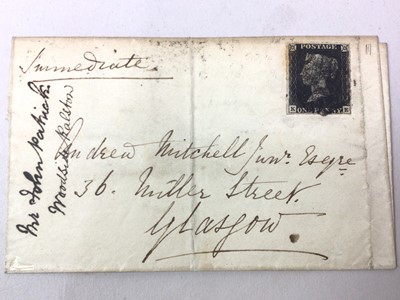 Immediate.
POSTAGE
ONE PENNY
K
Andrew Mitchell Junr. Esqre
36. Miller Street.
Glasgow.
Mr John Patrick
Woodside Ralston